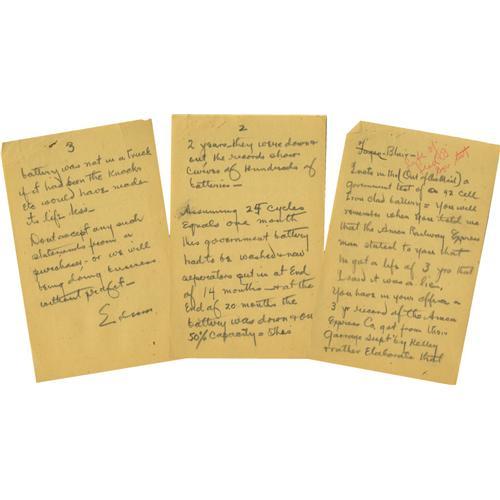 3
battery was not in a truck
if it has been the knocks
etc would have made
its life less.
Dont accept any such
statements from a
purchaser - or we will
being doing business
without profit -
Edison
2
2 years they were down &
out, the records show
curves of Hundreds of
batteries -
Assuming 24 cycles
Equals one month
This government battery
had to be washed & new
seperators put in at End
of 14 months - & at the
End of 20 months the
battery was down & on
50% capacity = This
Blair -
I note in the (Out of the Mail) a
government test of a 42 cell
Iron clad battery = You will
remember when you told me
that the Amn Railway Express
man stated to you that
he got a life of 3 yrs that
I said it was a lie,
You have in your office a
3 yr record of the Amn
Express Co, got from their
Garrage Supt by Kelley
rather Elaborate that